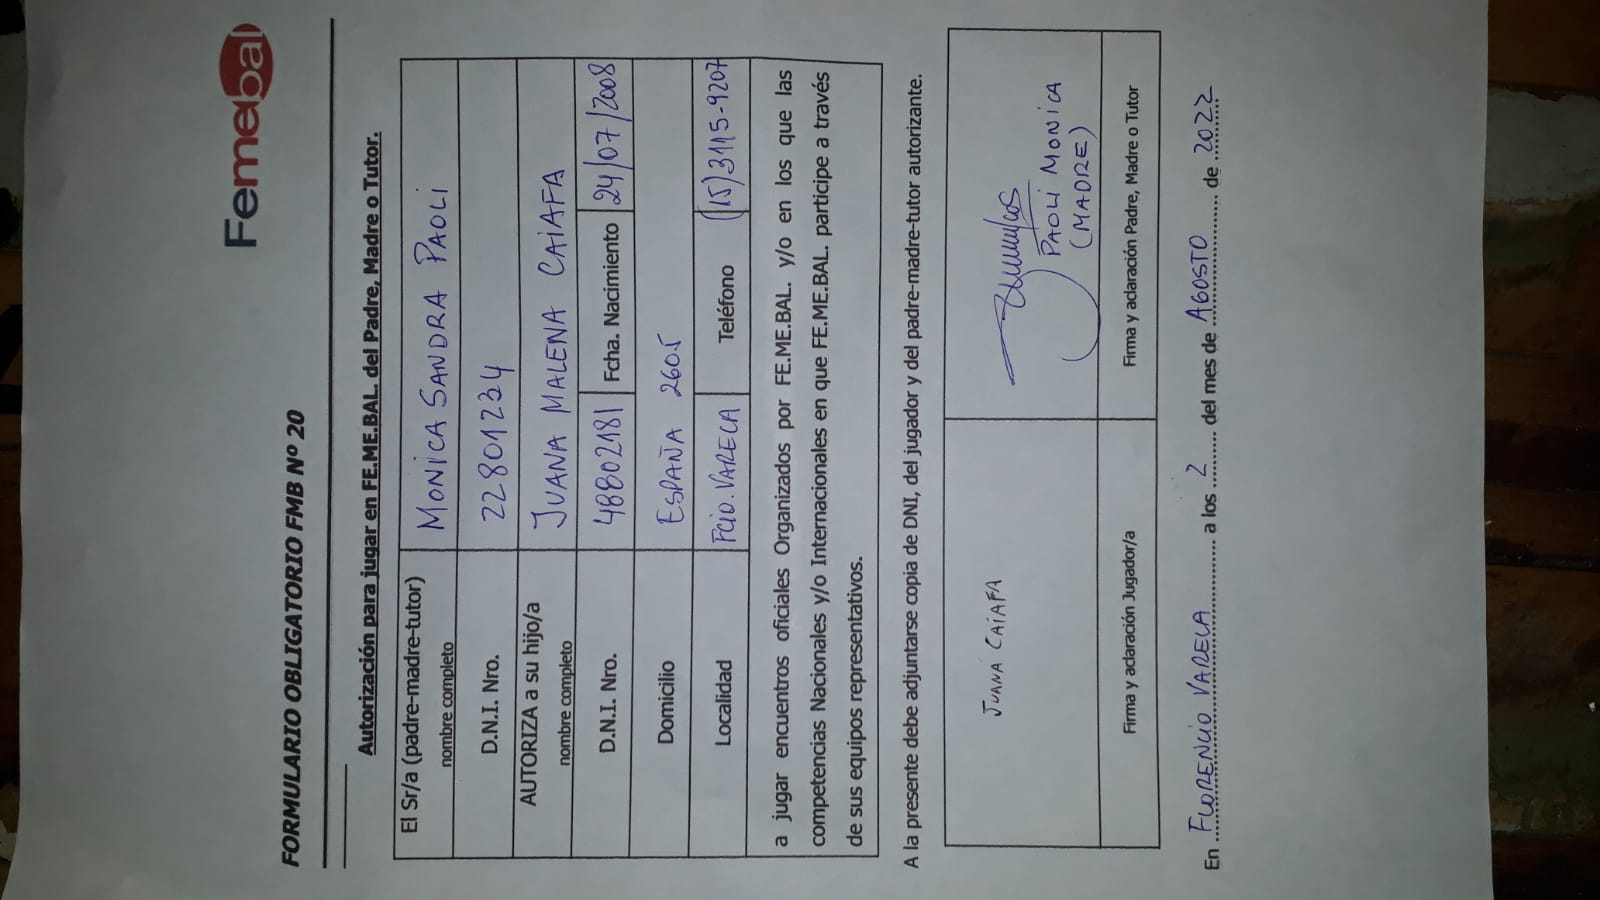 Femebal
FORMULARIO OBLIGATORIO FMB Nº 20
Autorización para jugar en FE.ME.BAL. del Padre, Madre o Tutor.
El Sr/a (padre-madre-tutor) MONICA SANDRA PAOLI
nombre completo
D.N.I. Nro. 22801234
AUTORIZA a su hijo/a JUANA MALENA CAIAFA
nombre completo
D.N.I. Nro. 48802181 Fcha. Nacimiento 24/07/2008
Domicilio ESPAÑA 2605
Localidad Fcio. VARELA Teléfono (15)3115-9207
a jugar encuentros oficiales Organizados por FE.ME.BAL. y/o en los que las
competencias Nacionales y/o Internacionales en que FE.ME.BAL. participe a través
de sus equipos representativos.
A la presente debe adjuntarse copia de DNI, del jugador y del padre-madre-tutor autorizante.
JUANA CAIAFA
PAOLI MONICA
(MADRE)
Firma y aclaración Jugador/a Firma y aclaración Padre, Madre o Tutor
En FLORENCIO VARELA a los 2 del mes de AGOSTO de 2022